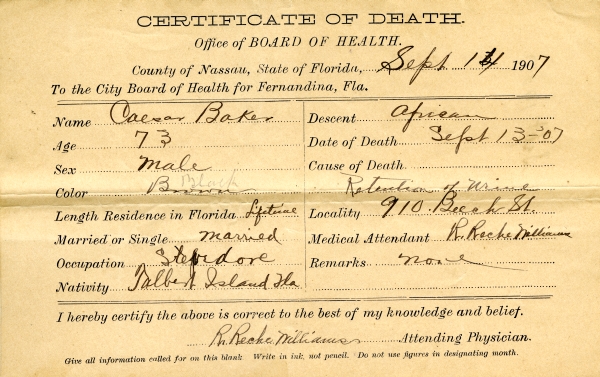 CERTIFICATE OF DEATH.
Office of BOARD OF HEALTH.
County of Nassau, State of Florida, Sept 14 1907
To the City Board of Health for Fernandina, Fla.
Name Caesar Baker
Age 73
Sex Male
Color Brown
Length Residence in Florida Lifetime
Married or Single Married
Occupation Stevidore
Nativity Talbert Island Fla
Descent African
Date of Death Sept 13-07
Cause of Death
Retention of Urine
Locality 910 Beech St.
Medical Attendant R. Reche Williams
Remarks None
I hereby certify the above is correct to the best of my knowledge and belief.
R. Reche Williams Attending Physician.
Give all information called for on this blank Write in ink, not pencil. Do not use figures in designating month.